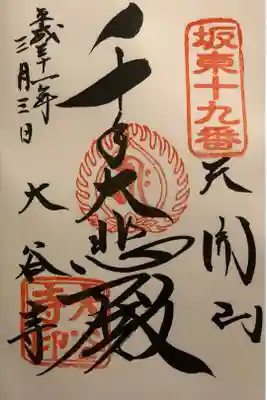 坂東十九番
天開山
千手大悲殿
平成三十一年
三月三日
大谷寺
大谷
寺印